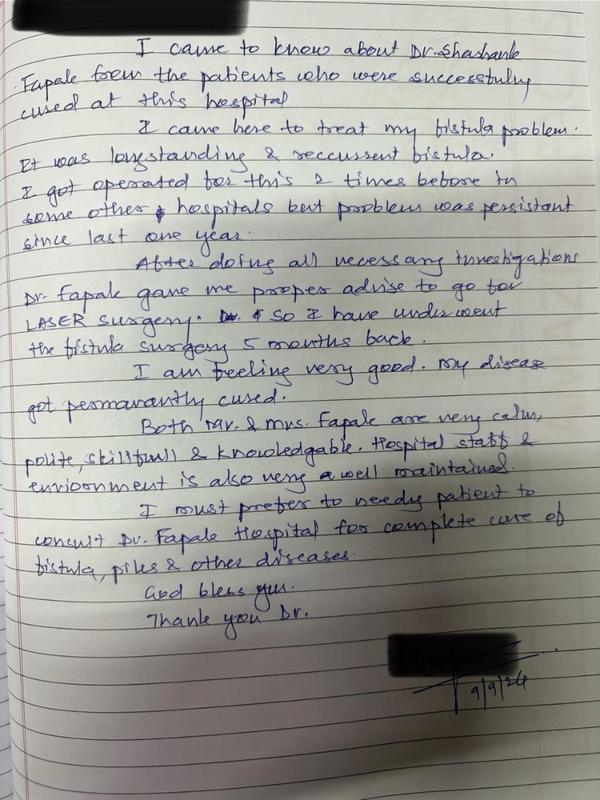 I came to know about Dr. Shashank
Fapale from the patients who were successfully
cured at this hospital
I came here to treat my fistula problem.
It was longstanding & reccurrent fistula.
I got operated for this 2 times before in
some other hospitals but problem was persistant
since last one year.
After doing all necessary investigations
Dr. Fapale gave me proper advise to go for
LASER surgery. So I have underwent
the fistula surgery 5 months back.
I am feeling very good. My disease
got permanantly cured.
Both Mr. & Mrs. Fapale are very calm,
polite, skillfull & knowledgable. Hospital staff &
environment is also very well maintained.
I must prefer to needy patient to
consult Dr. Fapale Hospital for complete cure of
fistula, piles & other diseases.
God bless you.
Thank you Dr.
9/9/24